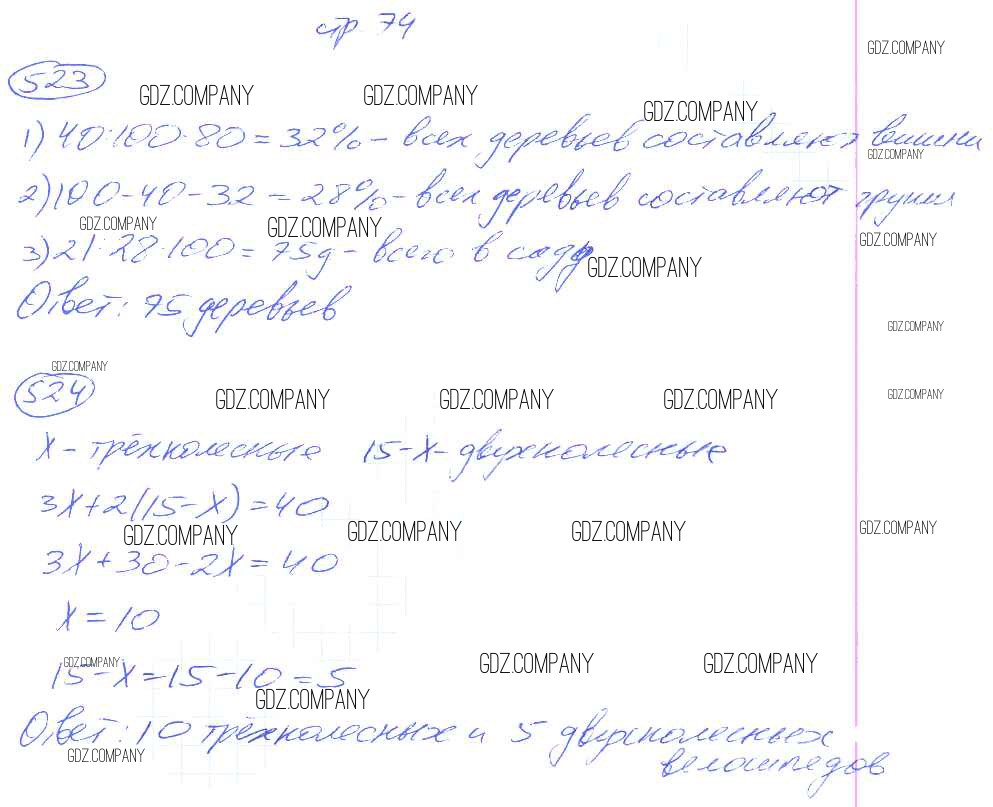 стр 74
GDZ.COMPANY
523
GDZ.COMPANY GDZ.COMPANY GDZ.COMPANY
1) 40:100·80=32%-всех деревьев составляют вишни
GDZ.COMPANY
2) 100-40-32=28%-всех деревьев составляют груши
GDZ.COMPANY GDZ.COMPANY GDZ.COMPANY
3) 21:28·100=75д-всего в саду
GDZ.COMPANY
Ответ: 75 деревьев
GDZ.COMPANY
GDZ.COMPANY
524
GDZ.COMPANY GDZ.COMPANY GDZ.COMPANY GDZ.COMPANY
X-трёхколесные 15-X-двухколесные
3X+2(15-X)=40
GDZ.COMPANY GDZ.COMPANY GDZ.COMPANY GDZ.COMPANY
3X+30-2X=40
X=10
GDZ.COMPANY GDZ.COMPANY GDZ.COMPANY
15-X=15-10=5
GDZ.COMPANY
Ответ: 10 трёхколесных и 5 двухколесных
GDZ.COMPANY
велосипедов